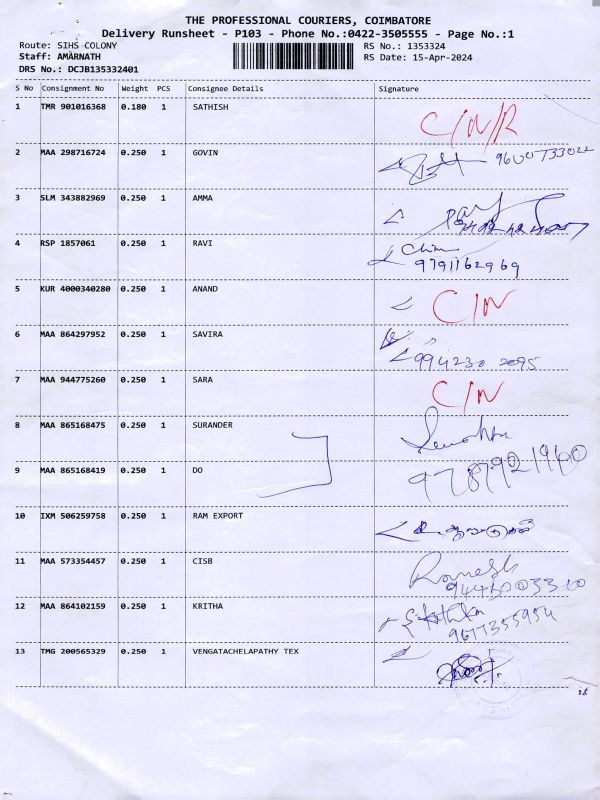 THE PROFESSIONAL COURIERS, COIMBATORE
Delivery Runsheet - P103 - Phone No.:0422-3505555 - Page No.:1
Route: SIHS COLONY
RS No.: 1353324
Staff: AMARNATH
RS Date: 15-Apr-2024
DRS No.: DCJB135332401
S No Consignment No Weight PCS Consignee Details Signature
1 TMR 901016368 0.180 1 SATHISH
C/N/R
2 MAA 298716724 0.250 1 GOVIN
9600733022
3 SLM 343882969 0.250 1 AMMA
4 RSP 1857061 0.250 1 RAVI
9791162969
5 KUR 4000340280 0.250 1 ANAND
C/N
6 MAA 864297952 0.250 1 SAVIRA
994230 2095
7 MAA 944775260 0.250 1 SARA
C/N
8 MAA 865168475 0.250 1 SURANDER
9 MAA 865168419 0.250 1 DO
9787921960
10 IXM 506259758 0.250 1 RAM EXPORT
11 MAA 573354457 0.250 1 CISB
Ramesh
9445003310
12 MAA 864102159 0.250 1 KRITHA
9677355954
13 TMG 200565329 0.250 1 VENGATACHELAPATHY TEX